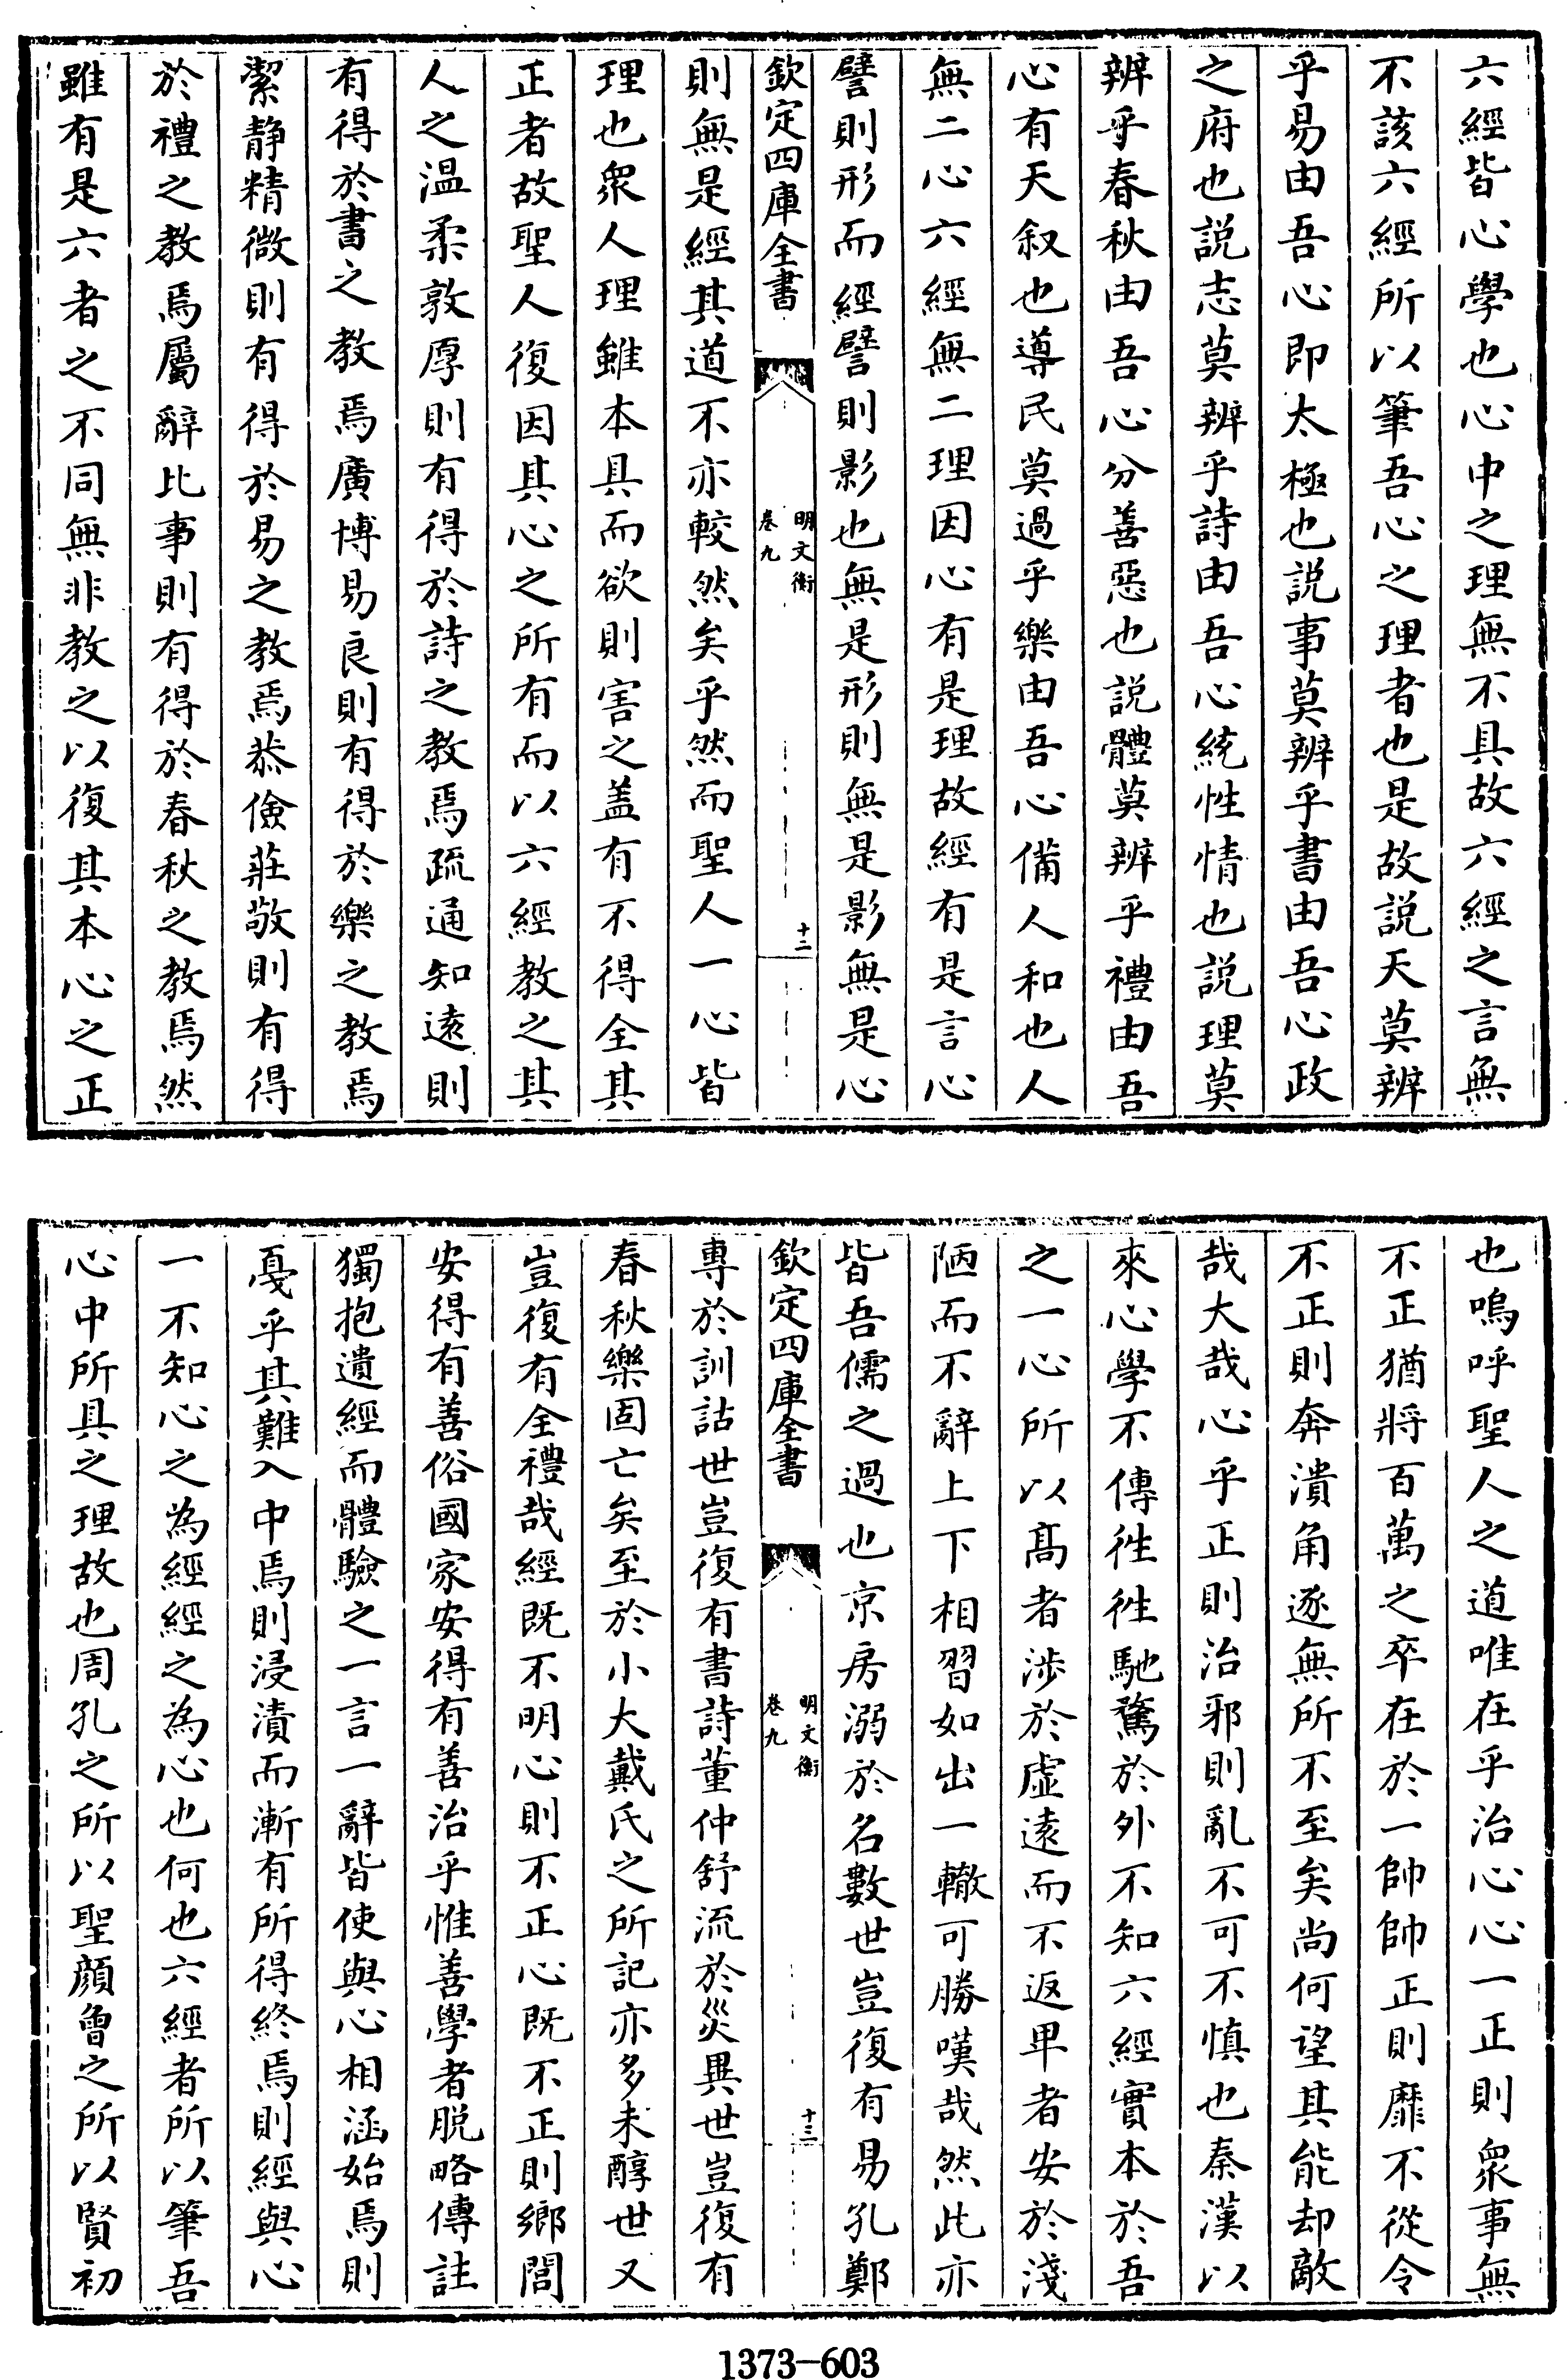 六經皆心學也心中之理無不具故六經之言無
不該六經所以筆吾心之理者也是故説天莫辨
乎易由吾心即太極也説事莫辨乎書由吾心政
之府也説志莫辨乎詩由吾心統性情也説理莫
辨乎春秋由吾心分善惡也説體莫辨乎禮由吾
心有天叙也導民莫過乎樂由吾心備人和也人
無二心六經無二理因心有是理故經有是言心
譬則形而經譬則影也無是形則無是影無是心
欽定四庫全書
明文衡
卷九
十二
則無是經其道不亦較然矣乎然而聖人一心皆
理也衆人理雖本具而欲則害之盖有不得全其
正者故聖人復因其心之所有而以六經教之其
人之温柔敦厚則有得於詩之教焉疏通知逺則
有得於書之教焉廣博易良則有得於樂之教焉
潔静精微則有得於易之教焉恭儉莊敬則有得
於禮之教焉屬辭比事則有得於春秋之教焉然
雖有是六者之不同無非教之以復其本心之正
也嗚呼聖人之道唯在乎治心心一正則衆事無
不正猶將百萬之卒在於一帥帥正則靡不從令
不正則奔潰角逐無所不至矣尚何望其能却敵
哉大哉心乎正則治邪則亂不可不慎也秦漢以
來心學不傳徃徃馳騖於外不知六經實本於吾
之一心所以髙者涉於虚逺而不返卑者安於淺
陋而不辭上下相習如出一轍可勝嘆哉然此亦
皆吾儒之過也京房溺於名數世豈復有易孔鄭
欽定四庫全書
明文衡
卷九
十三
專於訓詁世豈復有書詩董仲舒流於災異世豈復有
春秋樂固亡矣至於小大戴氏之所記亦多未醇世又
豈復有全禮哉經既不明心則不正心既不正則鄉閭
安得有善俗國家安得有善治乎惟善學者脱略傳註
獨抱遺經而體驗之一言一辭皆使與心相涵始焉則
戞乎其難入中焉則浸漬而漸有所得終焉則經與心
一不知心之為經經之為心也何也六經者所以筆吾
心中所具之理故也周孔之所以聖顔曾之所以賢初
1373—603